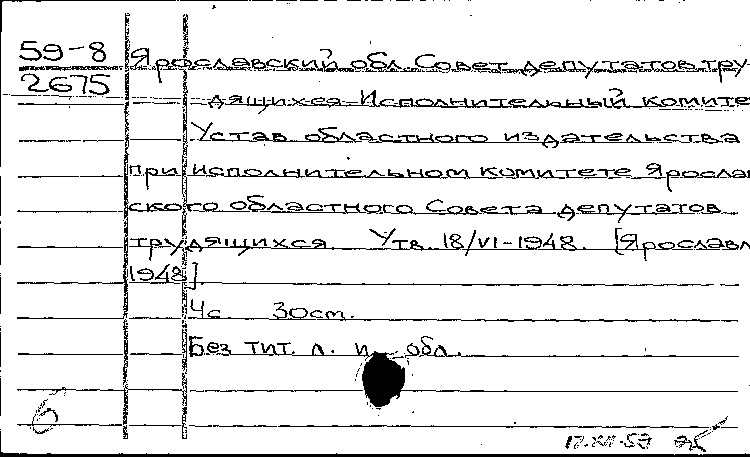 59-8
2675
Ярославский обл. Совет депутатов тру-
дящихся. Исполнительный комите
Устав областного издательства
при исполнительном комитете Яросла
ского областного Совета депутатов
трудящихся. Утв. 18/VI-1948. [Ярославл
1948].
4 с. 30 см.
Без тит. л. и обл.
6